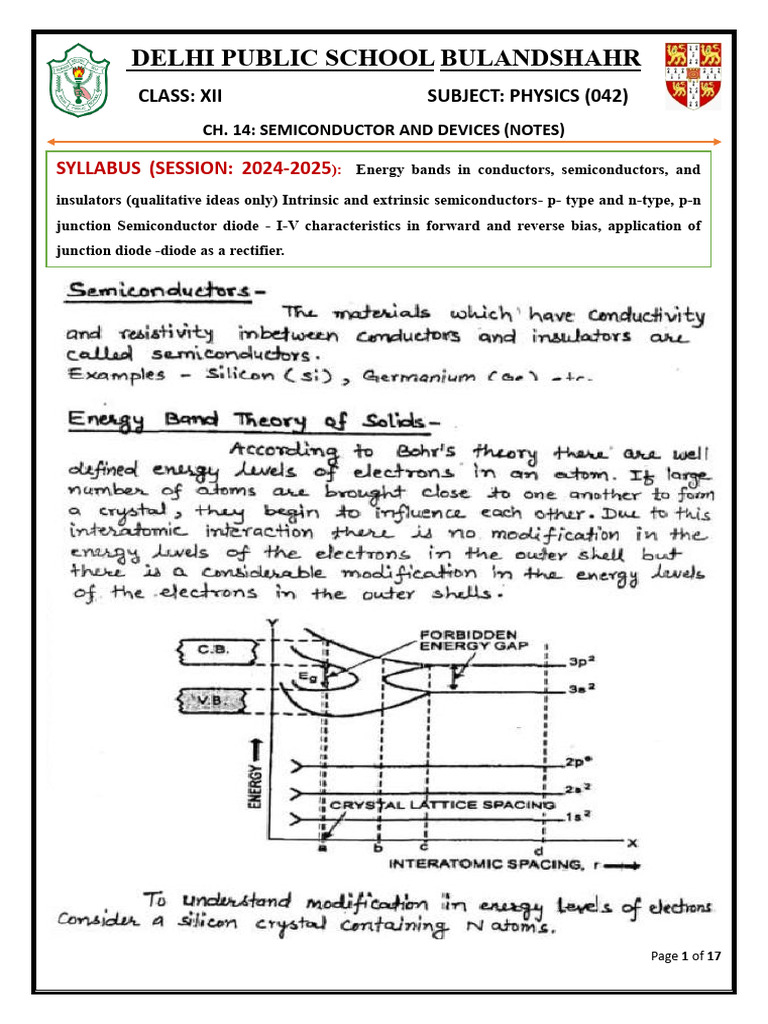 DELHI PUBLIC SCHOOL BULANDSHAHR
CLASS: XII SUBJECT: PHYSICS (042)
CH. 14: SEMICONDUCTOR AND DEVICES (NOTES)
SYLLABUS (SESSION: 2024-2025): Energy bands in conductors, semiconductors, and
insulators (qualitative ideas only) Intrinsic and extrinsic semiconductors- p- type and n-type, p-n
junction Semiconductor diode - I-V characteristics in forward and reverse bias, application of
junction diode -diode as a rectifier.
Semiconductors-
The materials which have conductivity
and resistivity inbetween conductors and insulators are
called semiconductors.
Examples - Silicon (Si), Germanium (Ge) etc.
Energy Band Theory of Solids-
According to Bohr's theory there are well
defined energy levels of electrons in an atom. If large
number of atoms are brought close to one another to form
a crystal, they begin to influence each other. Due to this
interatomic interaction there is no modification in the
energy levels of the electrons in the outer shell but
there is a considerable modification in the energy levels
of the electrons in the outer shells.
Y
FORBIDDEN
ENERGY GAP
C.B.
3p²
Eg
3s²
V.B.
ENERGY
2p⁶
2s²
CRYSTAL LATTICE SPACING
1s²
X
a b c d
INTERATOMIC SPACING, r
To understand modification in energy levels of electrons
Consider a silicon crystal containing N atoms.
Page 1 of 17